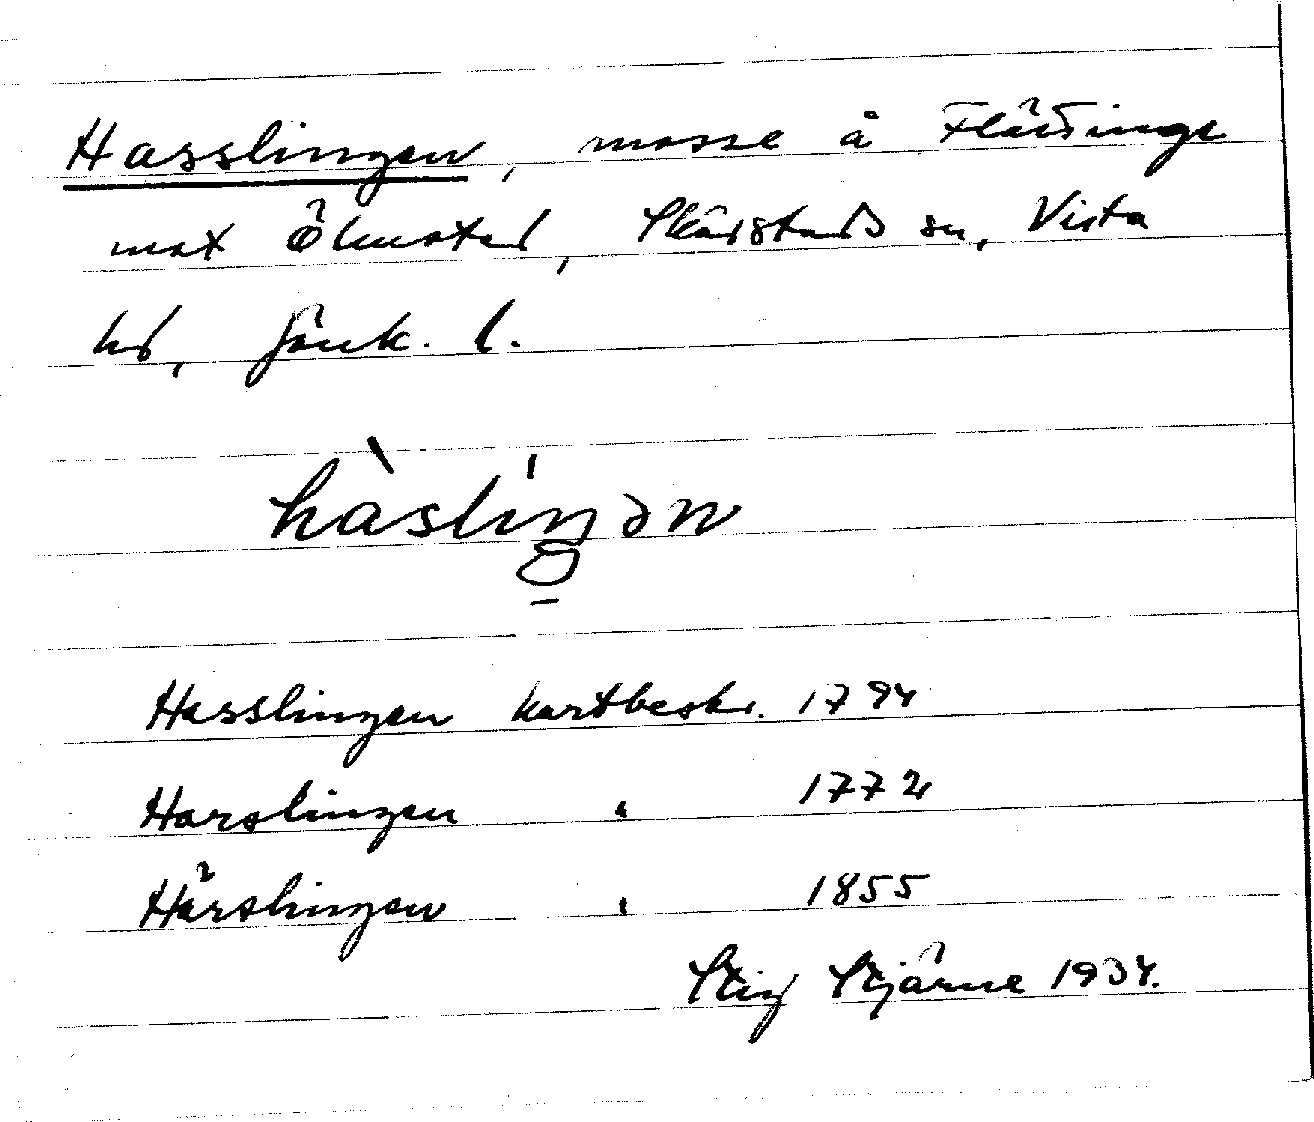 Hasslingen, mosse å Flättinge
mot Ölmstad, Skärstads sn, Vista
hd, Jönk. l.
hàslíŋən
Hasslingen kartbeskr. 1794
Horslingen " 1772
Hörslingen " 1855
Stig Stjärne 1934.